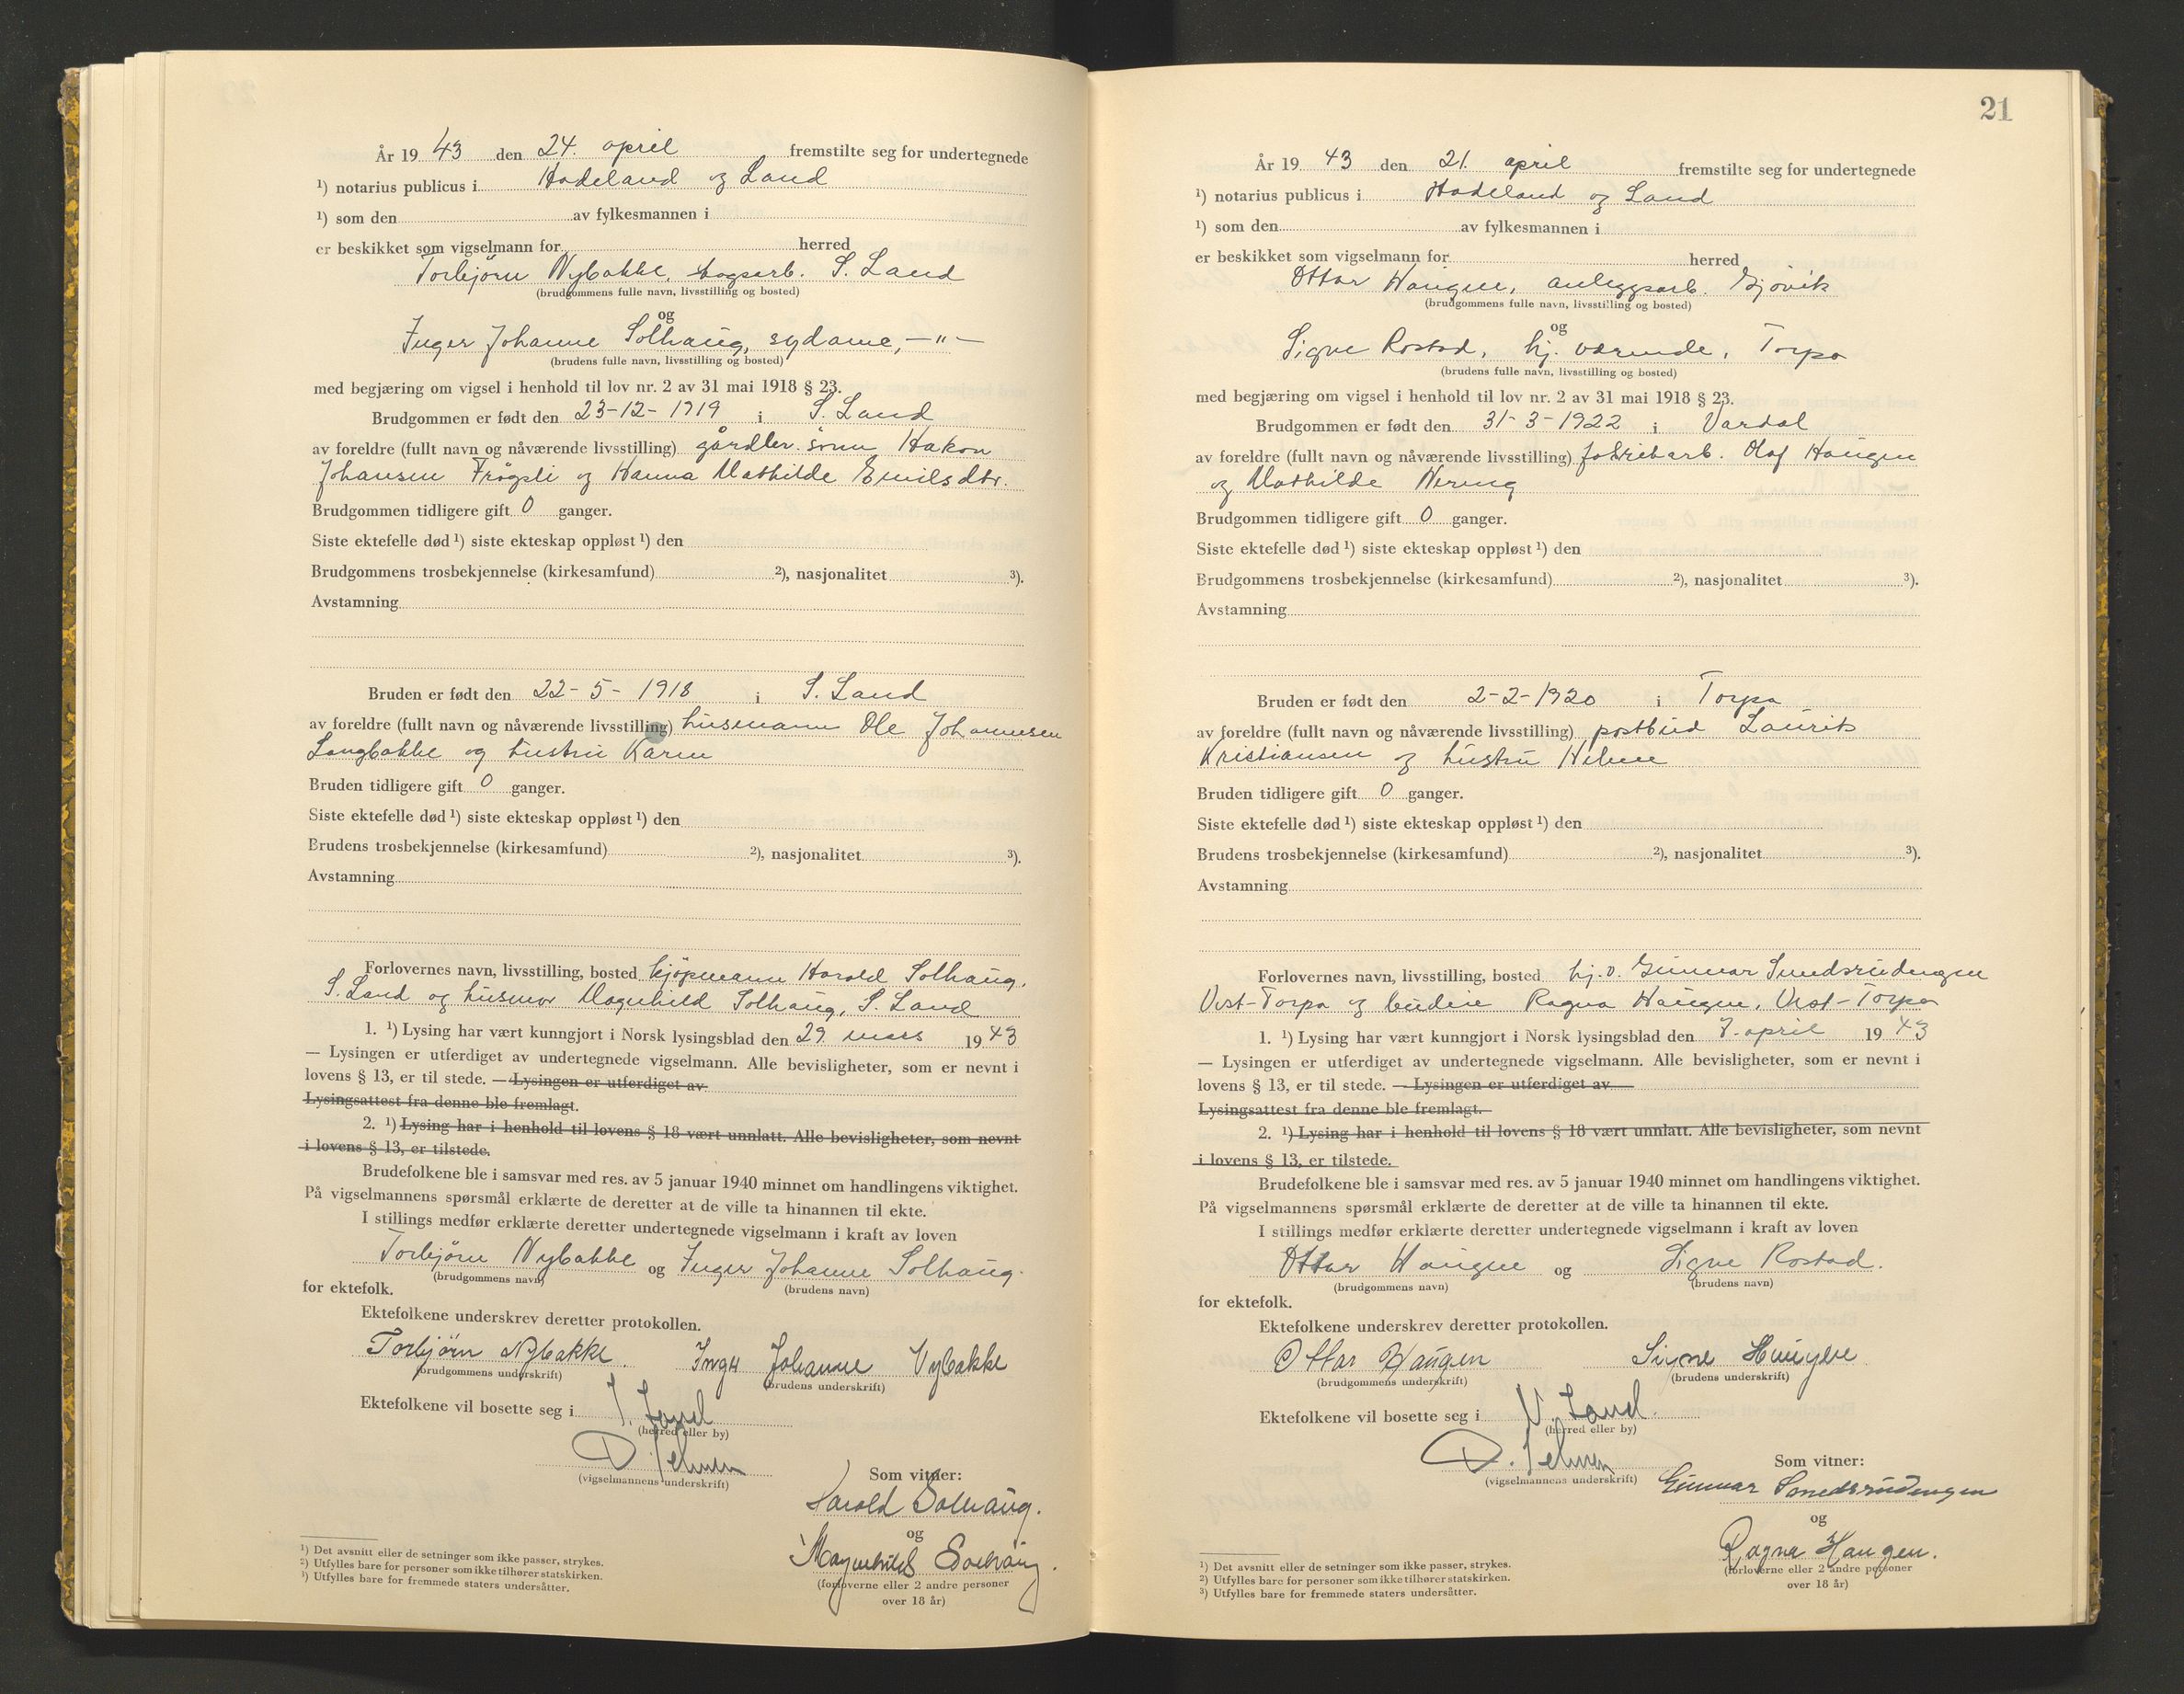 År 19 43 den 24. april fremstilte seg for undertegnede
¹) notarius publicus i Hadeland og Land
¹) som den av fylkesmannen i
er beskikket som vigselmann for herred
Torbjörn Nybakke, skogsarb. S. Land
(brudgommens fulle navn, livsstilling og bosted)
og
Inger Johanne Solhaug, sydame, —"—
(brudens fulle navn, livsstilling og bosted)
med begjæring om vigsel i henhold til lov nr. 2 av 31 mai 1918 § 23.
Brudgommen er født den 23-12-1919 i S. Land
av foreldre (fullt navn og nåværende livsstilling) gårdbr. sönn Hakon
Johansen Frögsli og Hanna Mathilde Emilsdtr.
Brudgommen tidligere gift 0 ganger.
Siste ektefelle død ¹) siste ekteskap oppløst ¹) den
Brudgommens trosbekjennelse (kirkesamfund) ²), nasjonalitet ³).
Avstamning
Bruden er født den 22-5-1918 i S. Land
av foreldre (fullt navn og nåværende livsstilling) husmann Ole Johannesen
Langbakke og hustru Karen
Bruden tidligere gift 0 ganger.
Siste ektefelle død ¹) siste ekteskap oppløst ¹) den
Brudens trosbekjennelse (kirkesamfund) ²), nasjonalitet ³).
Avstamning
Forlovernes navn, livsstilling, bosted kjöpmann Harald Solhaug,
S. Land og husmor Magnhild Solhaug, S. Land
1. ¹) Lysing har vært kunngjort i Norsk lysingsblad den 29. mars 19 43
— Lysingen er utferdiget av undertegnede vigselmann. Alle bevisligheter, som er nevnt i
lovens § 13, er til stede. — Lysingen er utferdiget av
Lysingsattest fra denne ble fremlagt.
2. ¹) Lysing har i henhold til lovens § 18 vært unnlatt. Alle bevisligheter, som nevnt
i lovens § 13, er tilstede.
Brudefolkene ble i samsvar med res. av 5 januar 1940 minnet om handlingens viktighet.
På vigselmannens spørsmål erklærte de deretter at de ville ta hinannen til ekte.
I stillings medfør erklærte deretter undertegnede vigselmann i kraft av loven
Torbjörn Nybakke og Inger Johanne Solhaug.
(brudgommens navn) (brudens navn)
for ektefolk.
Ektefolkene underskrev deretter protokollen.
Torbjörn Nybakke. Inger Johanne Nybakke
(brudgommens underskrift) (brudens underskrift)
Ektefolkene vil bosette seg i S. Land
(herred eller by)
D.
(vigselmannens underskrift)
Som vitner:
Harald Solhaug.
og
Magnhild Solhaug.
(forloverne eller 2 andre personer
over 18 år)
¹) Det avsnitt eller de setninger som ikke passer, strykes.
²) Utfylles bare for personer som ikke tilhører statskirken.
³) Utfylles bare for fremmede staters undersåtter.
21
År 19 43 den 21. april fremstilte seg for undertegnede
¹) notarius publicus i Hadeland og Land
¹) som den av fylkesmannen i
er beskikket som vigselmann for herred
Ottar Haugen, anleggsarb. Gjövik
(brudgommens fulle navn, livsstilling og bosted)
og
Signe Rostad, hj. værende, Torpa
(brudens fulle navn, livsstilling og bosted)
med begjæring om vigsel i henhold til lov nr. 2 av 31 mai 1918 § 23.
Brudgommen er født den 31-3-1922 i Vardal
av foreldre (fullt navn og nåværende livsstilling) fabrikarb. Olaf Haugen
og Mathilde Nering
Brudgommen tidligere gift 0 ganger.
Siste ektefelle død ¹) siste ekteskap oppløst ¹) den
Brudgommens trosbekjennelse (kirkesamfund) ²), nasjonalitet ³).
Avstamning
Bruden er født den 2-2-1920 i Torpa
av foreldre (fullt navn og nåværende livsstilling) postbud Laurits
Kristiansen og hustru Helene
Bruden tidligere gift 0 ganger.
Siste ektefelle død ¹) siste ekteskap oppløst ¹) den
Brudens trosbekjennelse (kirkesamfund) ²), nasjonalitet ³).
Avstamning
Forlovernes navn, livsstilling, bosted hj.v. Gunnar Smedsrudengen
Vest-Torpa og budeie Ragna Haugen, Vest-Torpa
1. ¹) Lysing har vært kunngjort i Norsk lysingsblad den 7. april 19 43
— Lysingen er utferdiget av undertegnede vigselmann. Alle bevisligheter, som er nevnt i
lovens § 13, er til stede. — Lysingen er utferdiget av
Lysingsattest fra denne ble fremlagt.
2. ¹) Lysing har i henhold til lovens § 18 vært unnlatt. Alle bevisligheter, som nevnt
i lovens § 13, er tilstede.
Brudefolkene ble i samsvar med res. av 5 januar 1940 minnet om handlingens viktighet.
På vigselmannens spørsmål erklærte de deretter at de ville ta hinannen til ekte.
I stillings medfør erklærte deretter undertegnede vigselmann i kraft av loven
Ottar Haugen og Signe Rostad.
(brudgommens navn) (brudens navn)
for ektefolk.
Ektefolkene underskrev deretter protokollen.
Ottar Haugen Signe Haugen
(brudgommens underskrift) (brudens underskrift)
Ektefolkene vil bosette seg i N. Land.
(herred eller by)
D.
(vigselmannens underskrift)
Som vitner:
Gunnar Smedsrudengen
og
Ragna Haugen.
(forloverne eller 2 andre personer
over 18 år)
¹) Det avsnitt eller de setninger som ikke passer, strykes.
²) Utfylles bare for personer som ikke tilhører statskirken.
³) Utfylles bare for fremmede staters undersåtter.